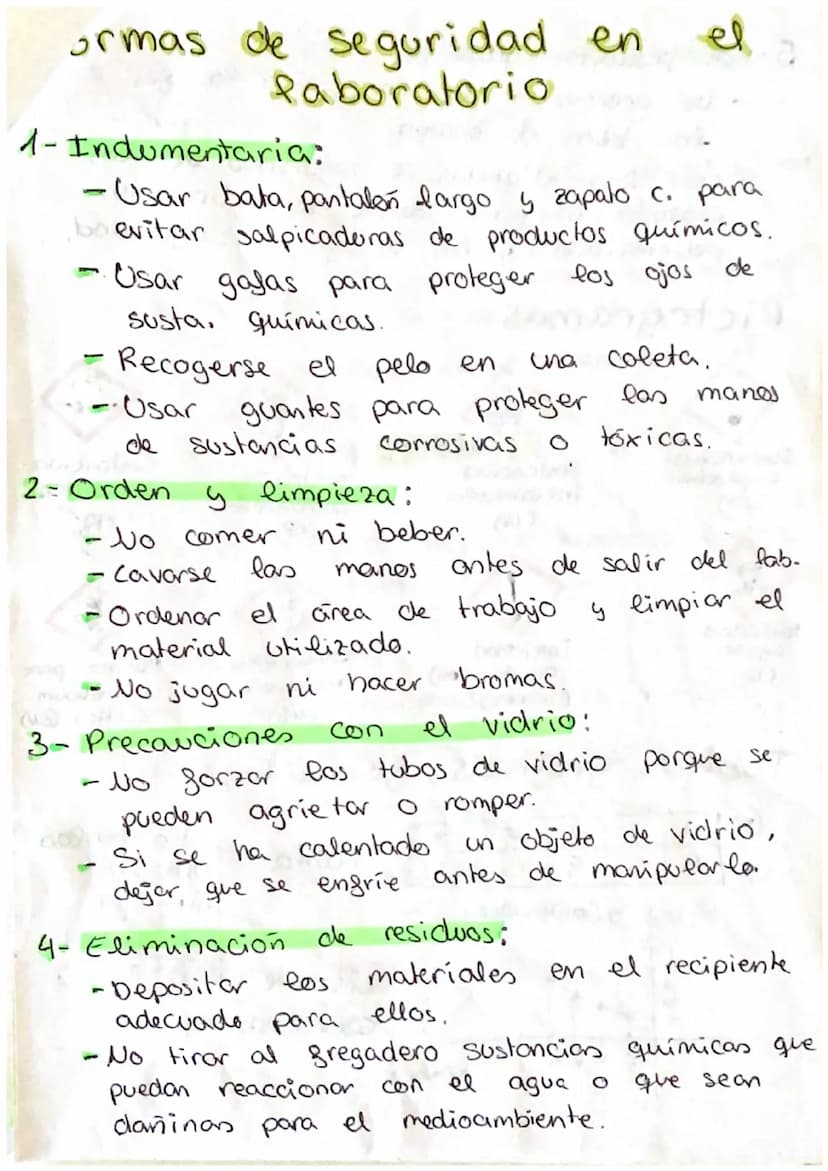 ormas de seguridad en el
laboratorio
1- Indumentaria:
- Usar bata, pantalón largo y zapato c. para
evitar salpicaduras de productos químicos.
- Usar gafas para proteger los ojos de
susta. químicas.
- Recogerse el pelo en una coleta.
- Usar guantes para proteger las manos
de sustancias corrosivas o tóxicas.
2.- Orden y limpieza:
- No comer ni beber.
- Lavarse las manos antes de salir del lab.
- Ordenar el área de trabajo y limpiar el
material utilizado.
- No jugar ni hacer bromas.
3- Precauciones con el vidrio:
- No forzar los tubos de vidrio porque se
pueden agrietar o romper.
- Si se ha calentado un objeto de vidrio,
dejar que se enfríe antes de manipularlo.
4- Eliminación de residuos:
- Depositar los materiales en el recipiente
adecuado para ellos.
- No tirar al fregadero sustancias químicas que
puedan reaccionar con el agua o que sean
dañinas para el medioambiente.